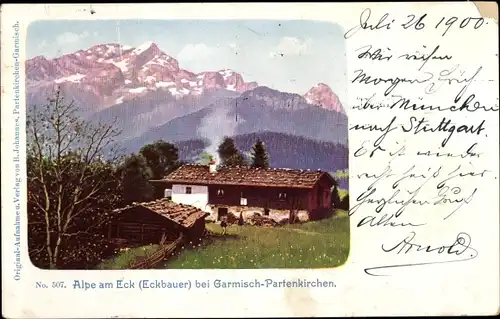 Juli 26 1900.
Wir reisen
Morgen früh
über München
nach Stuttgart.
Es ist wieder
recht heiß hier
herzliche Grüße
Allen
Arnold.
Original-Aufnahme u. Verlag von B. Johannes, Partenkirchen-Garmisch.
No. 507. Alpe am Eck (Eckbauer) bei Garmisch-Partenkirchen.